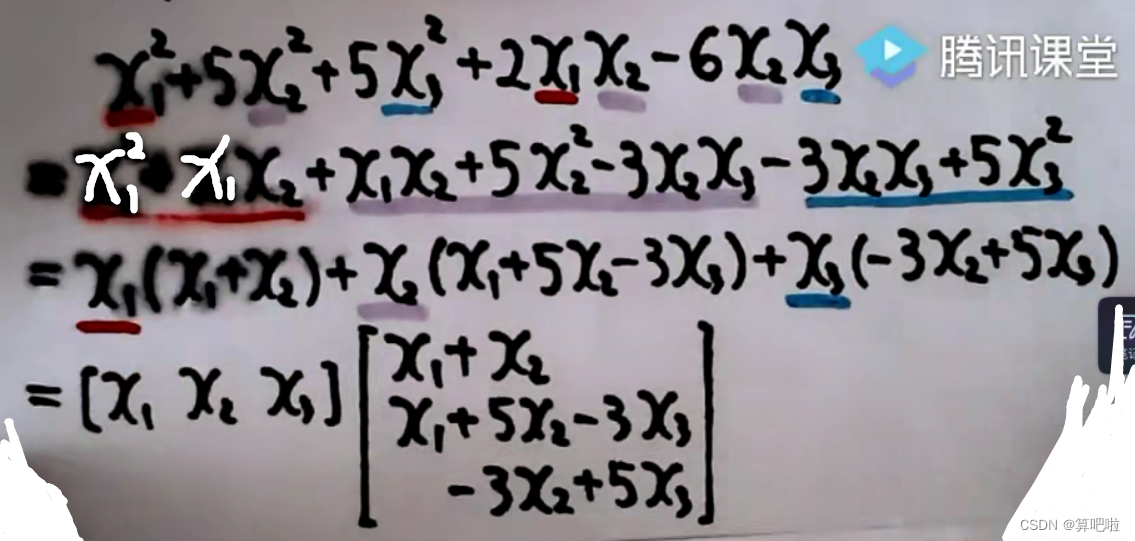 x₁²+5x₂²+5x₃²+2x₁x₂-6x₂x₃
腾讯课堂
=x₁² x₁x₂+x₁x₂+5x₂²-3x₂x₃-3x₂x₃+5x₃²
=x₁(x₁+x₂)+x₂(x₁+5x₂-3x₃)+x₃(-3x₂+5x₃)
=[x₁ x₂ x₃] [x₁+x₂
x₁+5x₂-3x₃
-3x₂+5x₃]
CSDN @算吧啦